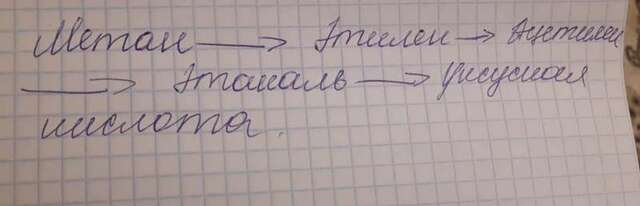 Метан → Этилен → Ацетилен
→ Этаналь → уксусная
кислота.